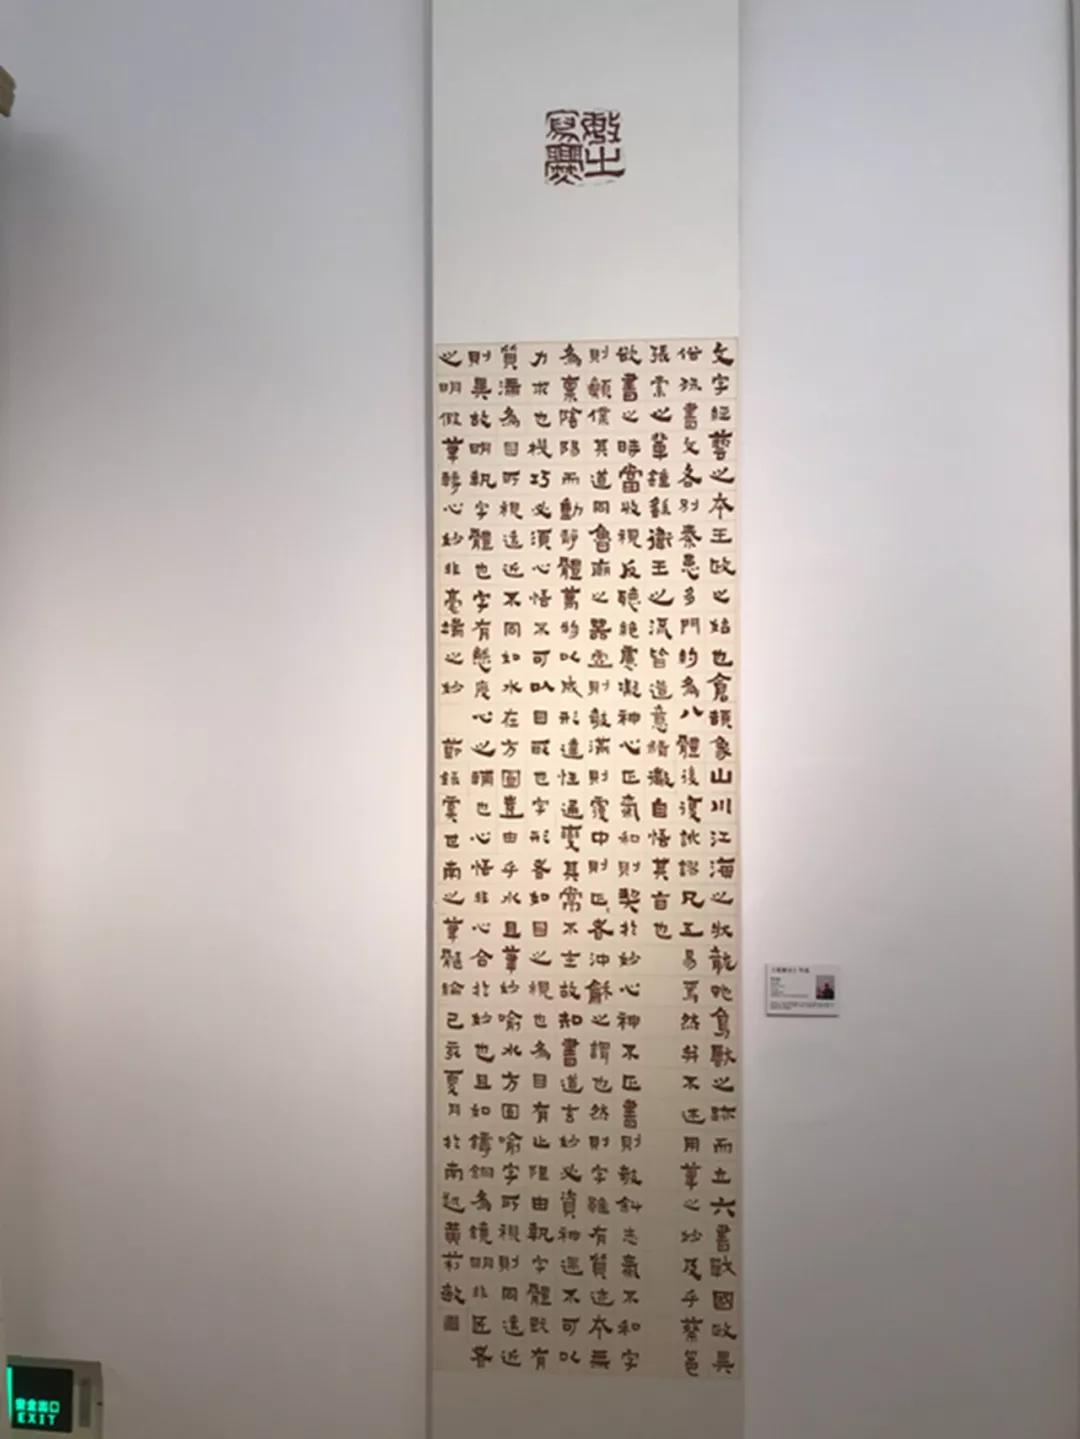 文字經藝之本王政之始也倉頡象山川江海之狀龍虵鳥獸之跡而立六書戰國政異
俗殊書文各別秦患多門約為八體後復訛謬凡五易焉然並不述用筆之妙及乎蔡邕
張索之輩鍾繇衛王之流皆造意精微自悟其旨也
欲書之時當收視反聽絕慮凝神心正氣和則契於妙心神不正書則敧斜志氣不和字
則顛僕其道同魯廟之器虛則敧滿則覆中則正者沖龢之謂也然則字雖有質迹本無
為稟陰陽而動靜體萬物以成形達性通變其常不主故知書道玄妙必資神遇不可以
力求也機巧必須心悟不可以目取也字形者如目之視也為目有止限由執字體既有
質滯為目所視遠近不同如水在方圓豈由乎水且筆妙喻水方圓喻字所視則同遠近
則異故明執字體也字有態度心之輔也心悟非心合於妙也且如鑄銅為鏡明非匠者
之明假筆轉心妙非毫端之妙 節錄虞世南之筆髓論己亥夏月於南越黃莉敏
安全出口
EXIT